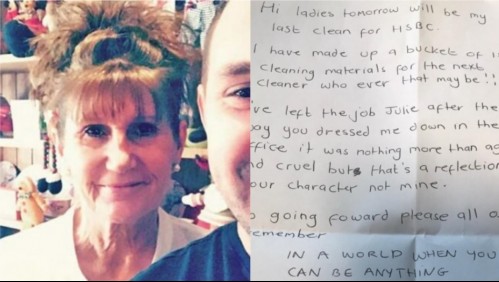 Hi ladies tomorrow will be my
last clean for HSBC.
I have made up a bucket of
cleaning materials for the next
cleaner who ever that may be!!
've left the job Julie after the
you dressed me down in the
office it was nothing more than
nd cruel but that's a reflection
our character not mine.
going foward please all
emember
IN A WORLD WHEN YOU
CAN BE ANYTHING